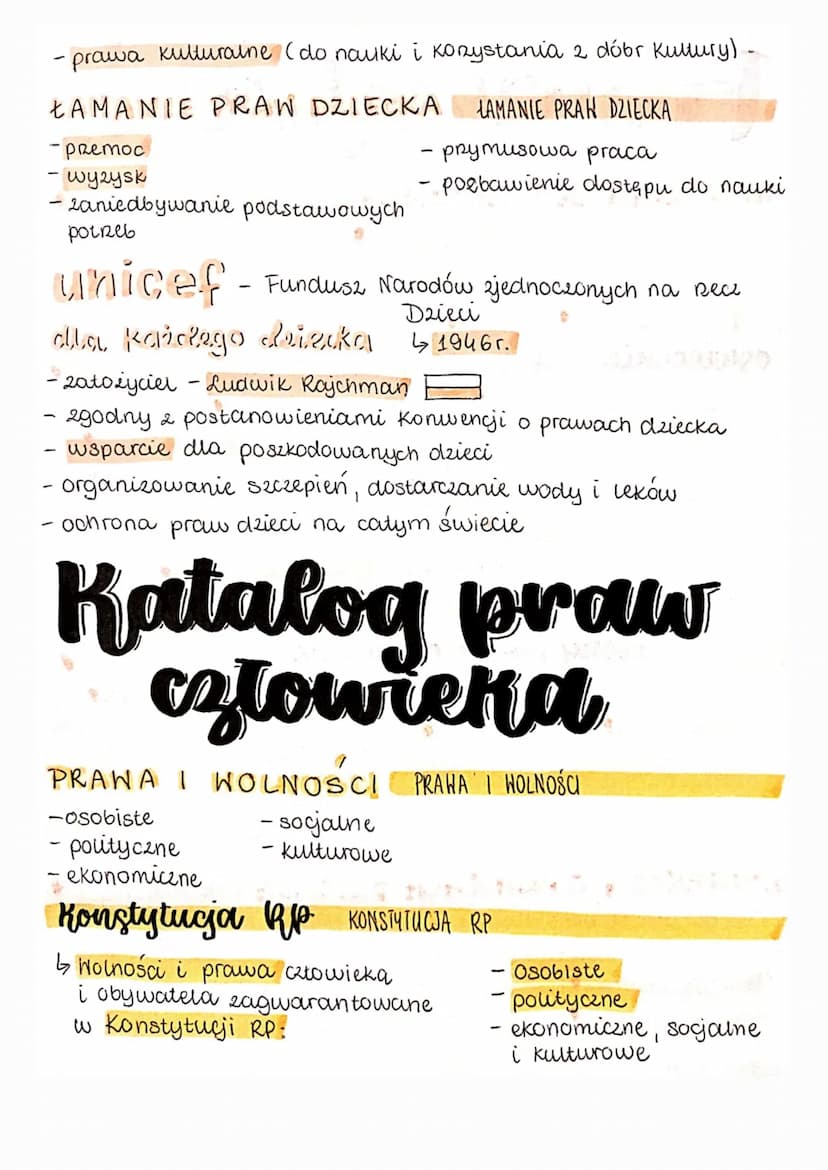 - prawa kulturalne (do nauki i korzystania z dóbr kultury) -
ŁAMANIE PRAW DZIECKA ŁAMANIE PRAW DZIECKA
- przemoc
- wyzysk
- zaniedbywanie podstawowych
potrzeb
- przymusowa praca
- pozbawienie dostępu do nauki
unicef - Fundusz Narodów zjednoczonych na rzecz
Dzieci
dla każdego dziecka ↳ 1946r.
- założyciel - Ludwik Rajchman
- zgodny z postanowieniami Konwencji o prawach dziecka
- wsparcie dla poszkodowanych dzieci
- organizowanie szczepień, dostarczanie wody i leków
- ochrona praw dzieci na całym świecie
Katalog praw
człowieka
PRAWA I WOLNOŚCI PRAWA I WOLNOŚCI
- osobiste
- polityczne
- ekonomiczne
- socjalne
- kulturowe
Konstytucja RP KONSTYTUCJA RP
↳ Wolności i prawa człowieka
i obywatela zagwarantowane
w Konstytucji RP:
- osobiste
- polityczne
- ekonomiczne, socjalne
i kulturowe